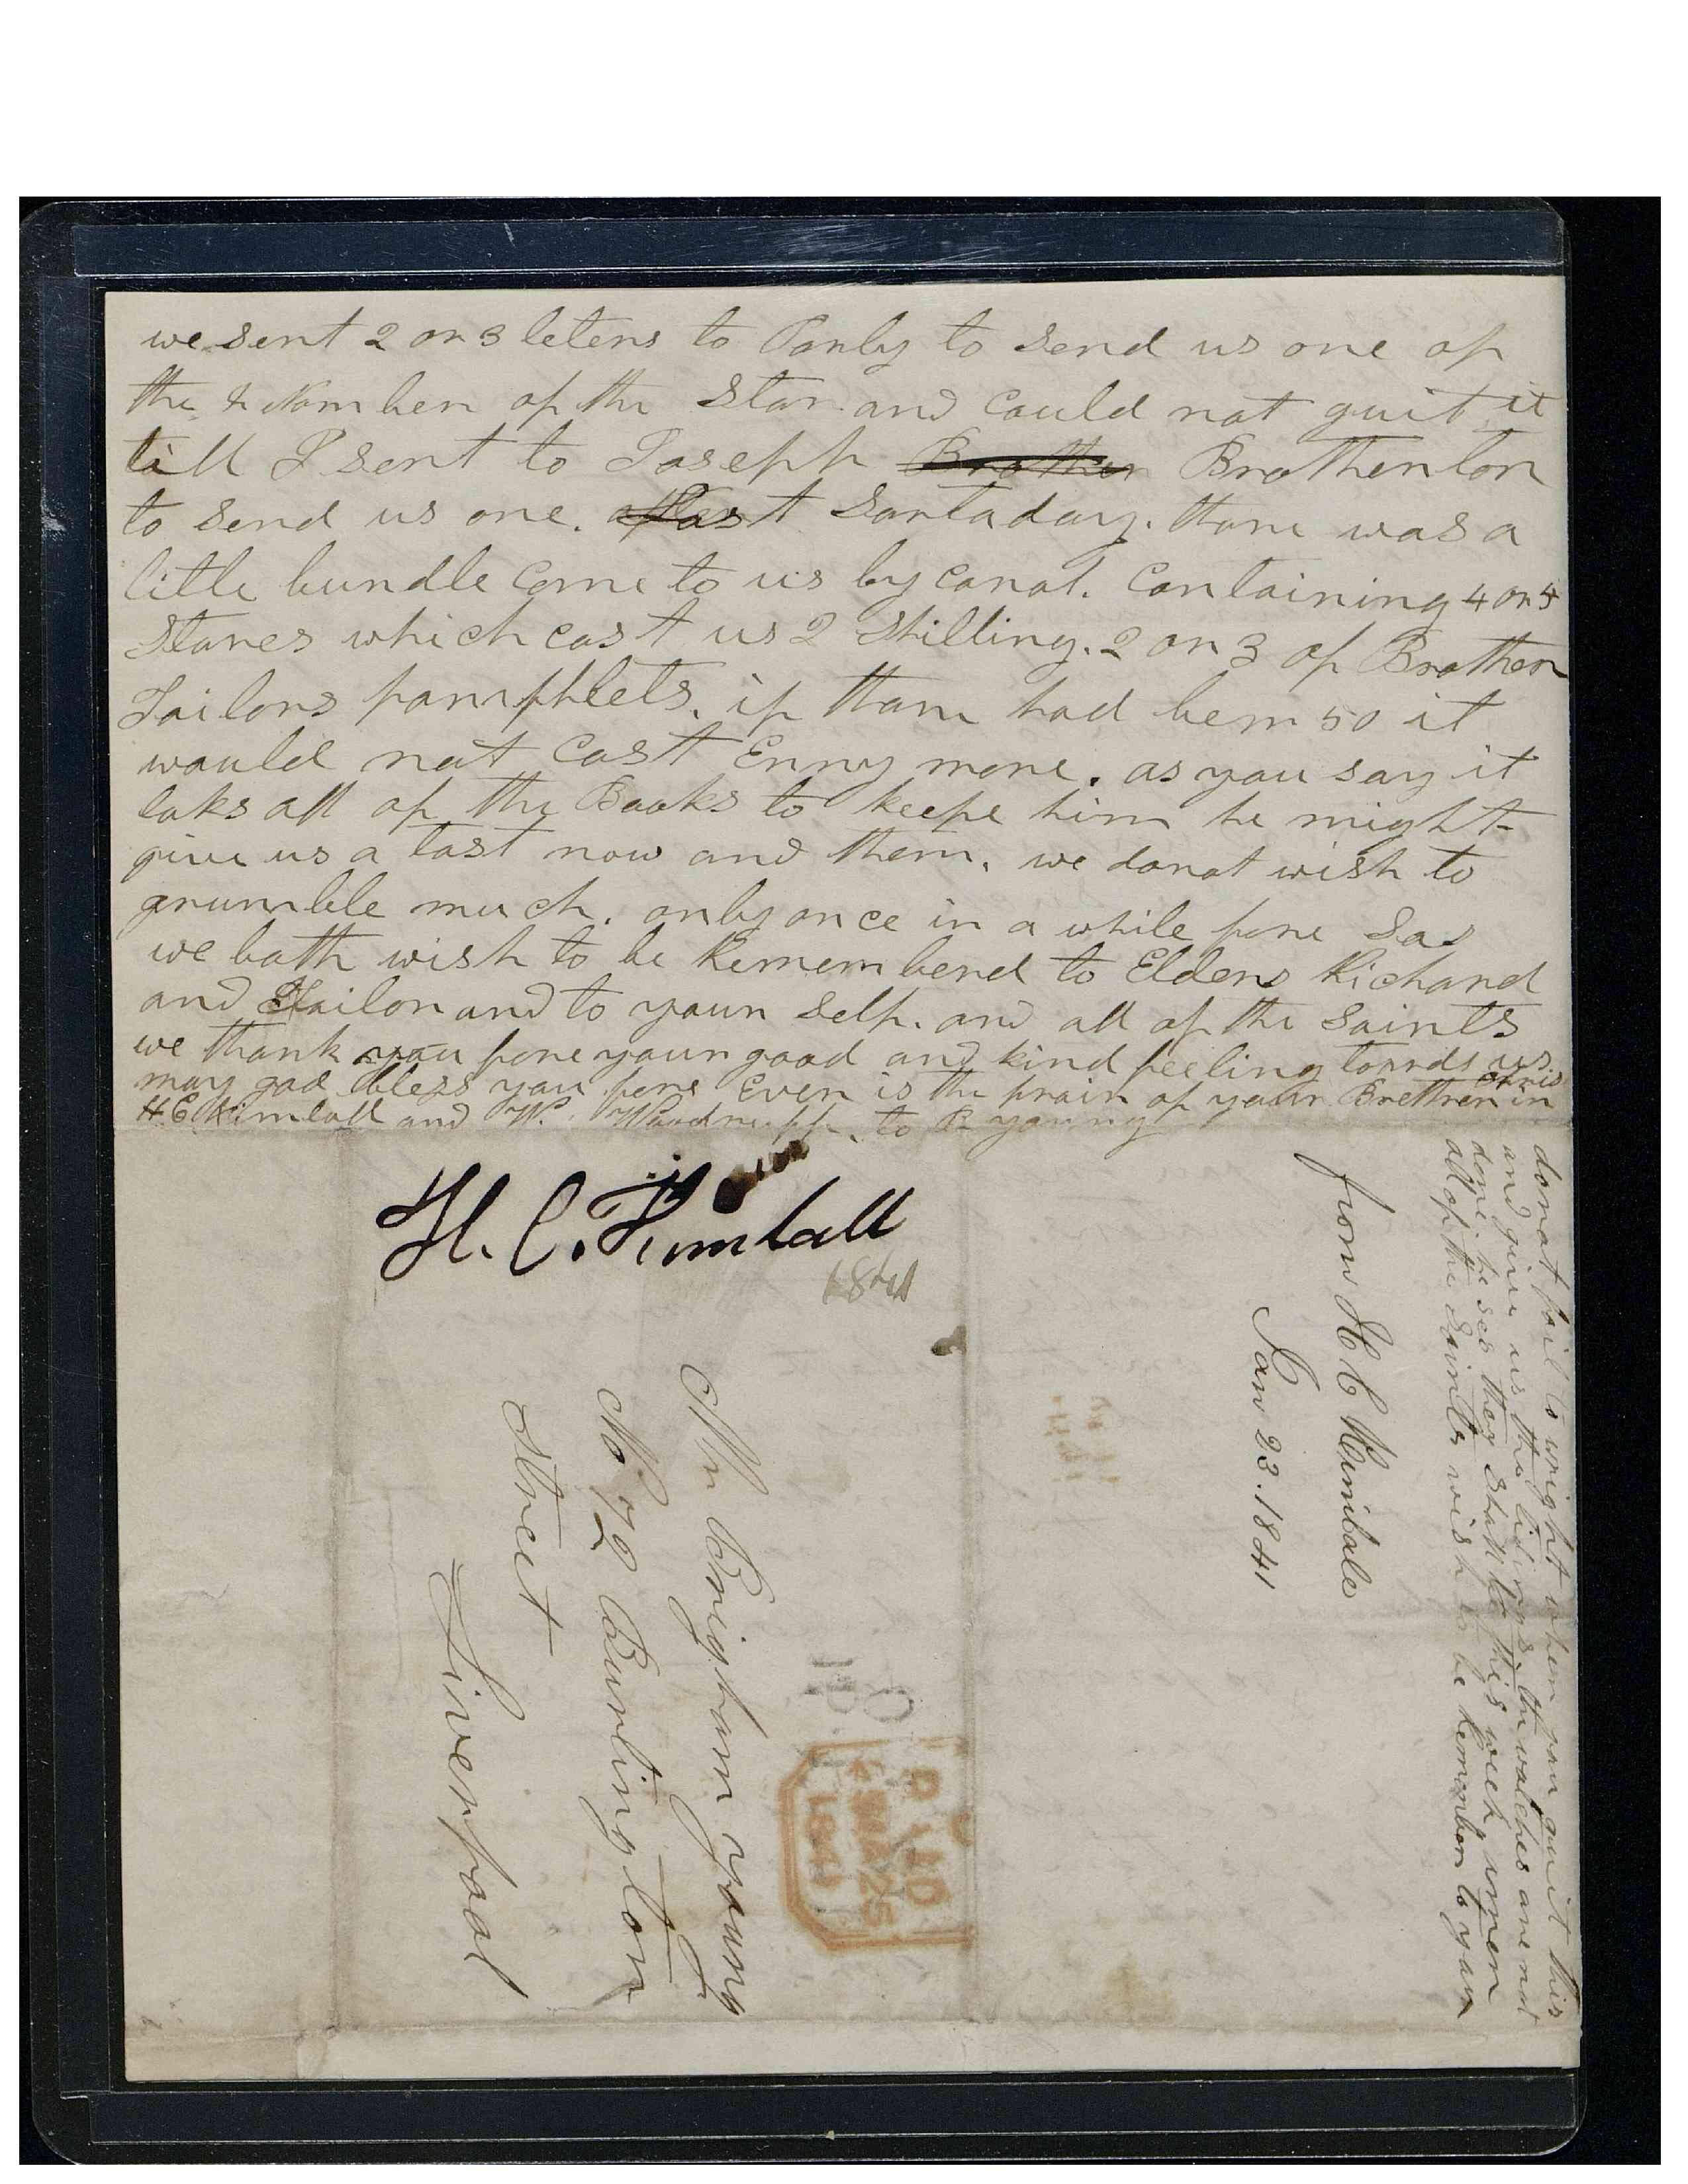 we sent 2 or 3 leters to Parly to send us one of
the 8 Nomber of the Star and could not guit it
till I sent to Joseph Brother Brotherton
to send us one. last Sartaday. thare was a
litle bundle come to us by canal. containing 4 or 5
Stares which cost us 2 Shilling. 2 or 3 of Brother
Tailors pamphlets. if thare had bem 50 it
would not cost Enny more. as you say it
taks all of the Books to keepe him he might
give us a tast now and them. we donot wish to
grumble much. only once in a while fore Sas
we both wish to be Rememberd to Elders Richard
and Tailor and to your Self. and all of the Saints
we thank you fore your good and kind feeling tourds us
may god bless you fore Ever is the prair of your Brethren in Chris
H C Kimball and W. Woodruff. to B young
H. C. Kimball
1841
Mr Brigham young
No 72 Burlington
Street
Liverpool
PAID
25
1841
from H C Kimball
Jan 23. 1841
donot fail to wright when you guit this
and give us the tidings. the watches are not
done. he ses they shall be this week
all of the Saints wish to be Remember to you